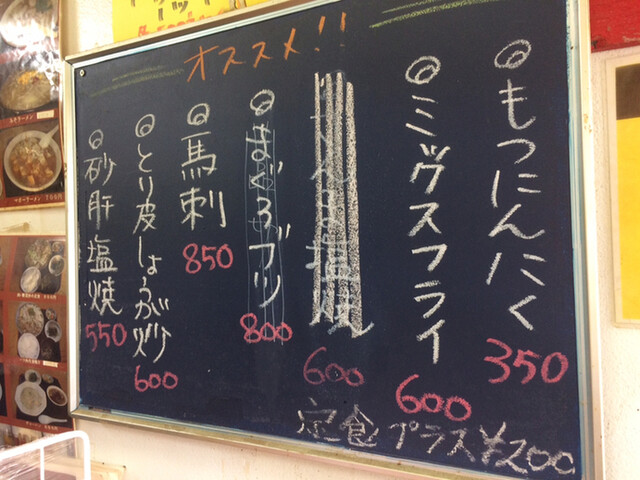 オススメ!!
◎もつにんにく
350
◎ミックスフライ
600
塩焼
600
◎まぐろブツ
800
◎馬刺
850
◎とり皮しょうが炒
600
◎砂肝塩焼
550
定食プラス¥200